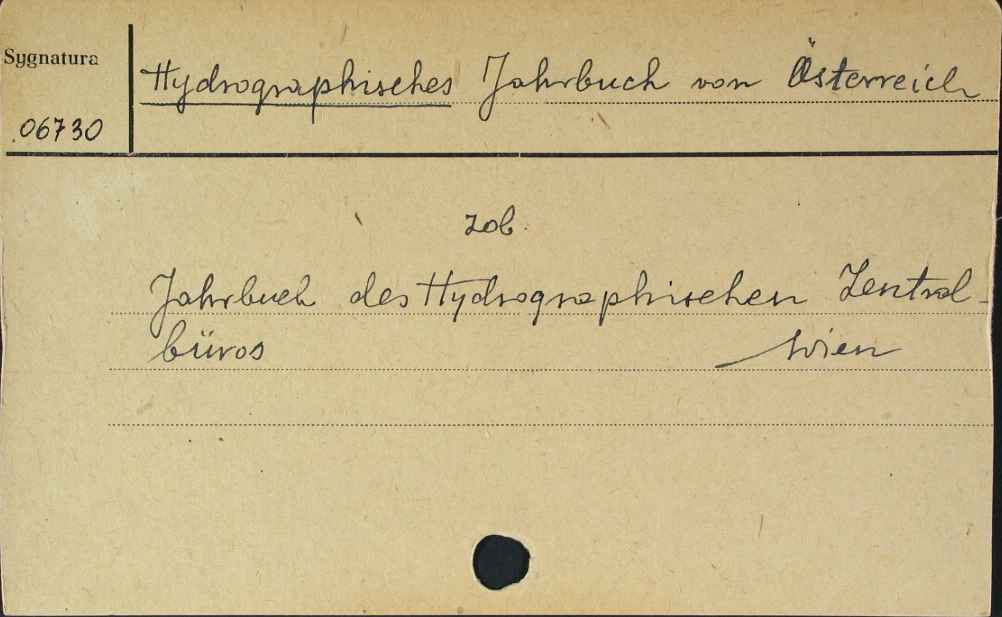 Sygnatura
Hydrographisches Jahrbuch von Österreich
06730
zob.
Jahrbuch des Hydrographischen Zentral-
büros Wien